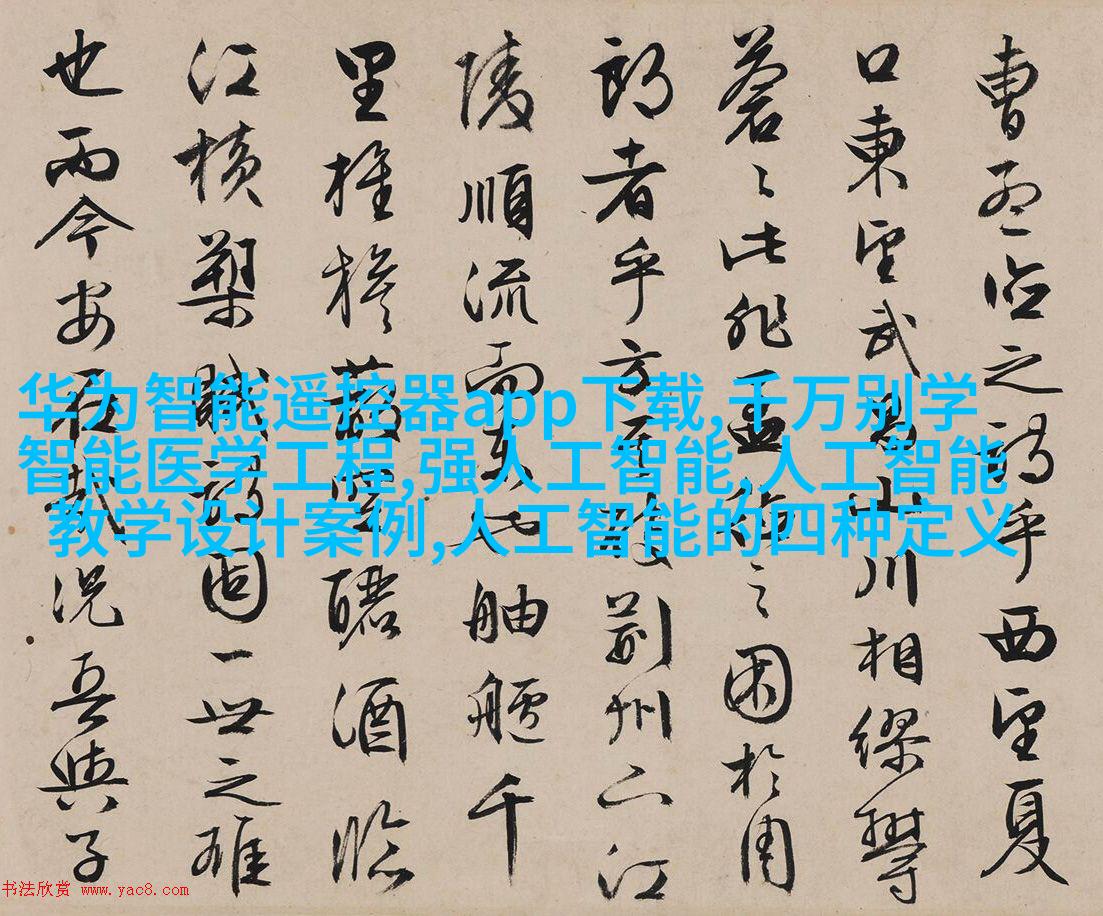 曹孟德之詩乎西望夏
口東望武昌山川相繆鬱
蒼々此非孟德之困於周
郎者乎方其破荊州下江
陵順流而東也舳艫千
里旌旗蔽空釃酒臨
江橫槊賦詩固一世之雄
也而今安在哉況吾與子
华为智能遥控器app下载,千万别学
智能医学工程,强人工智能,人工智能
教学设计案例,人工智能的四种定义
书法欣赏 www.yac8.com